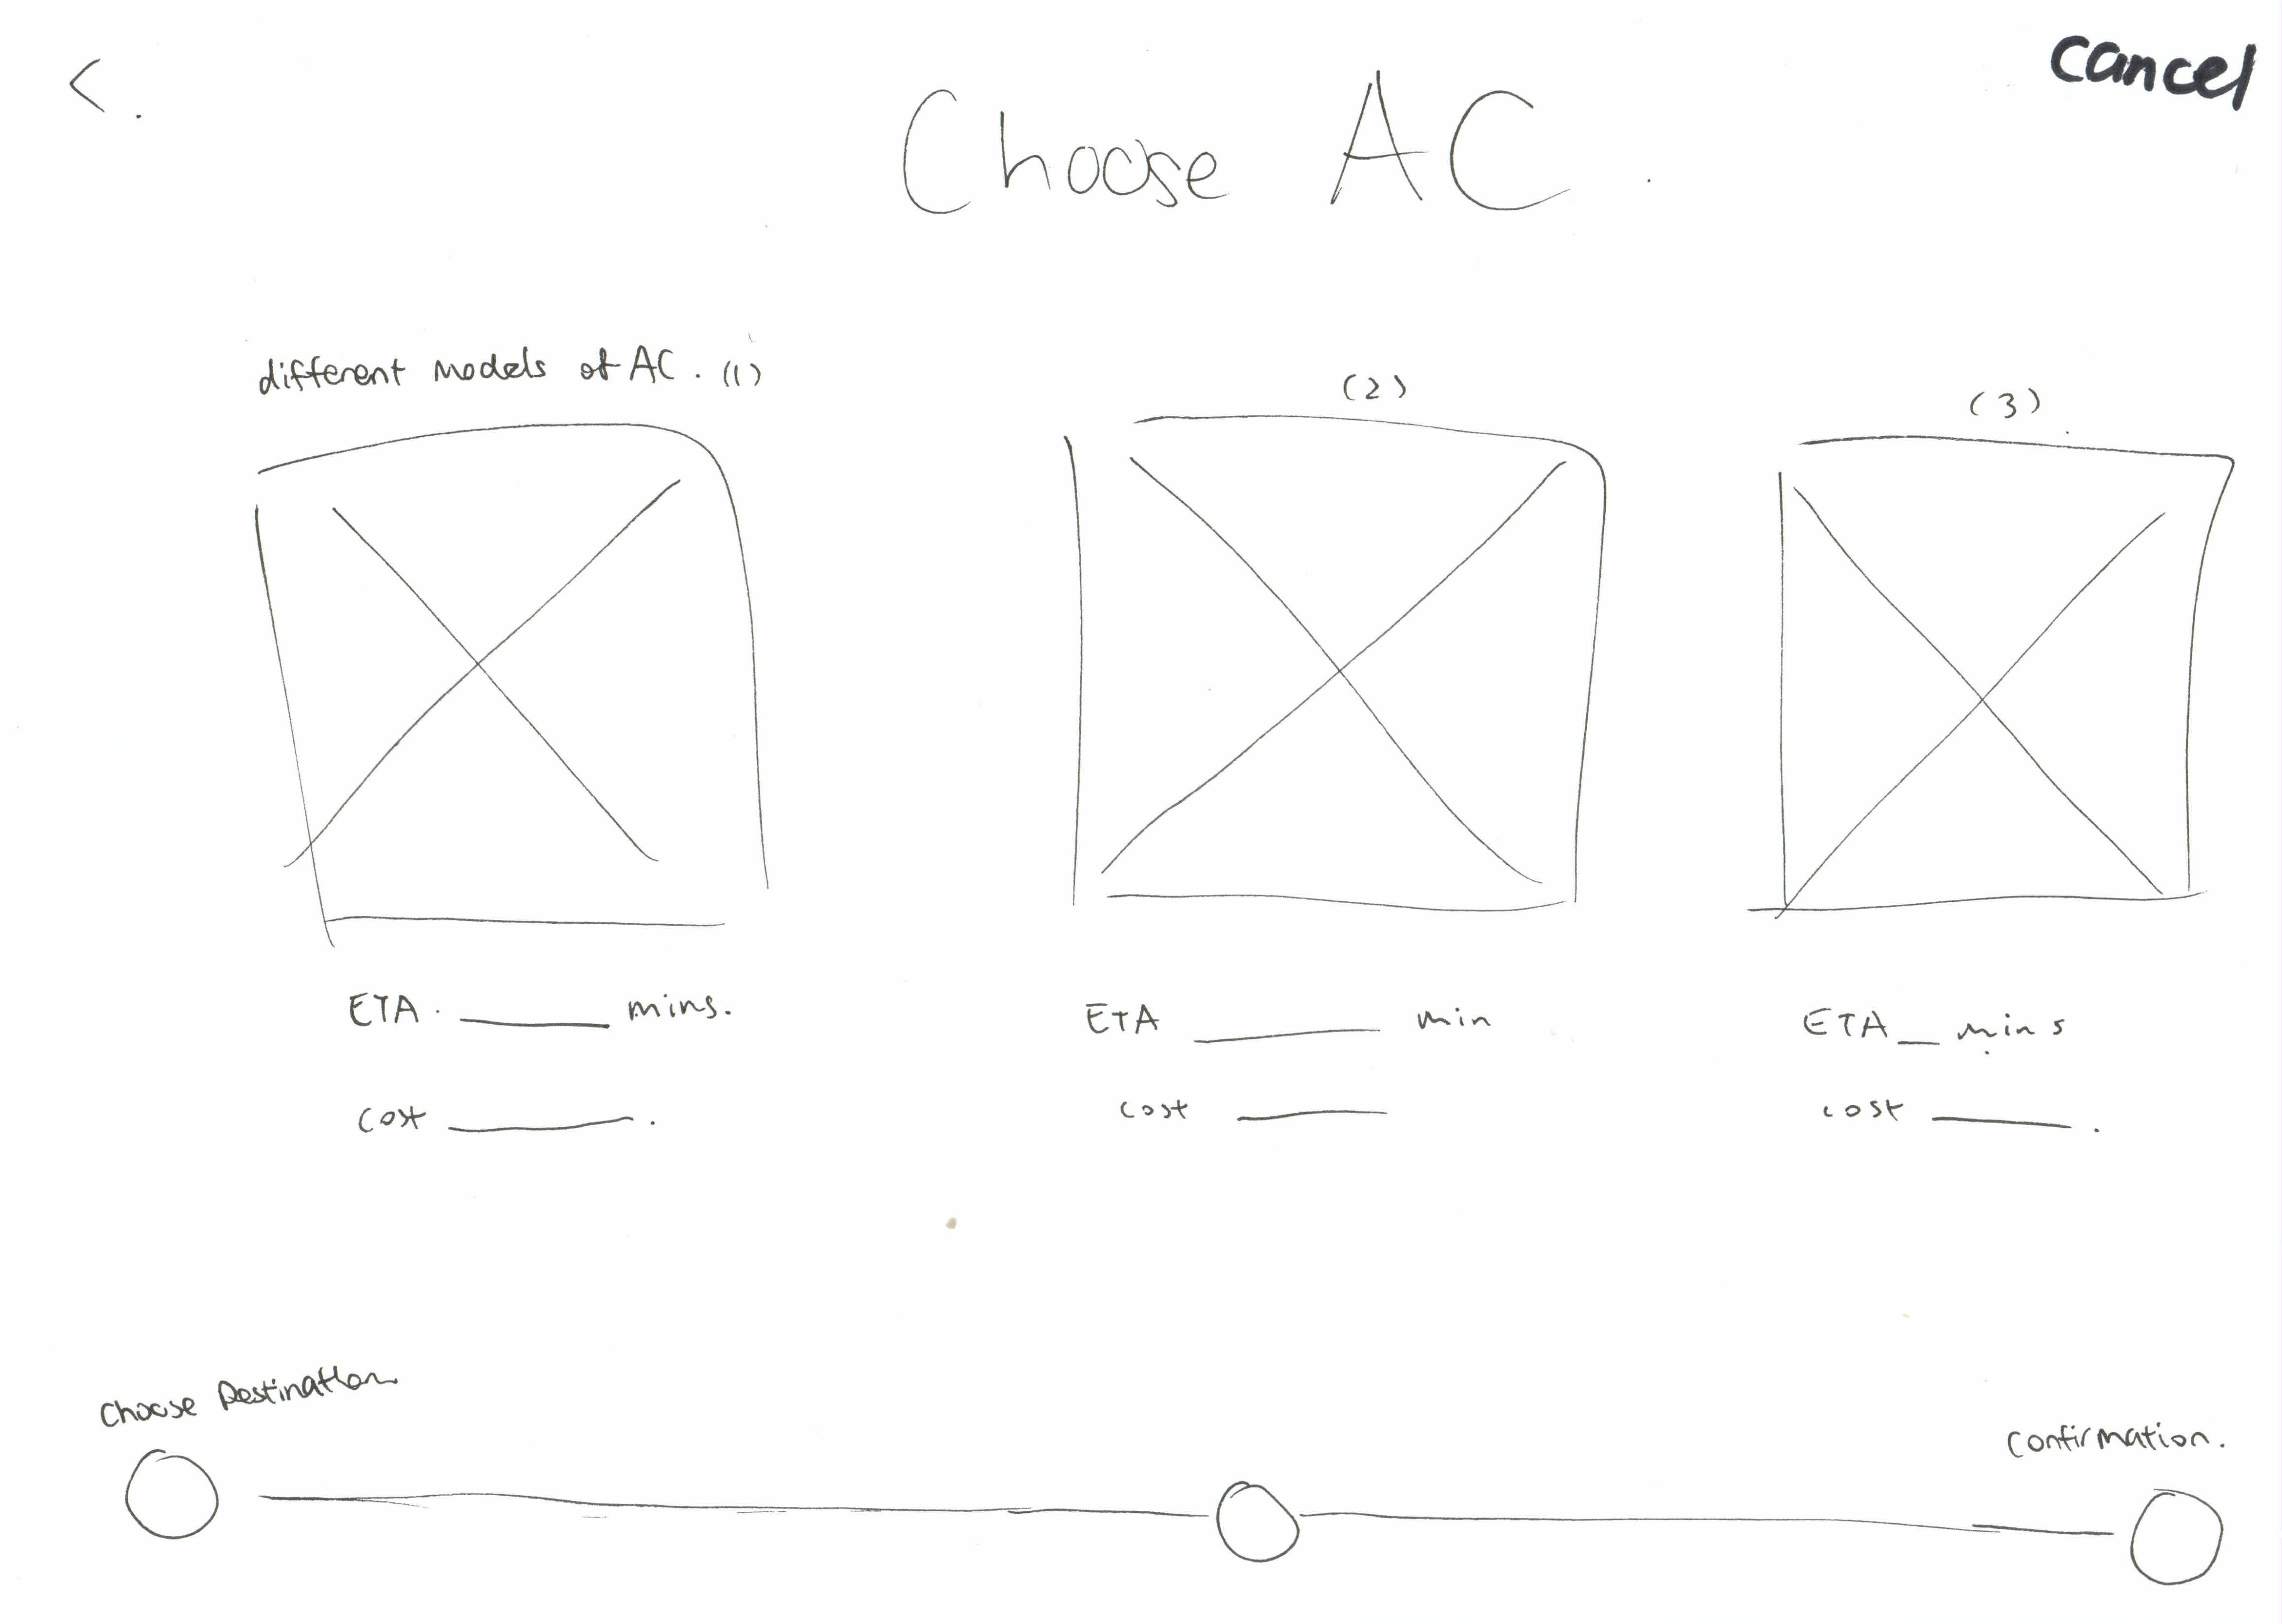 <.
cancel
Choose AC.
different models of AC. (1)
(2)
(3)
ETA. ____ mins.
ETA ____ min
ETA _ mins
cost ____.
cost ____
cost ____.
Choose Destination
Confirmation.